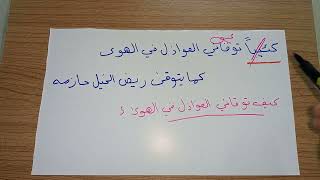 كئيباً توقاني العواذل في الهوى
كما يتوقى ريض الخيل حازمه
كيف توقاني العواذل في الهوى ؟